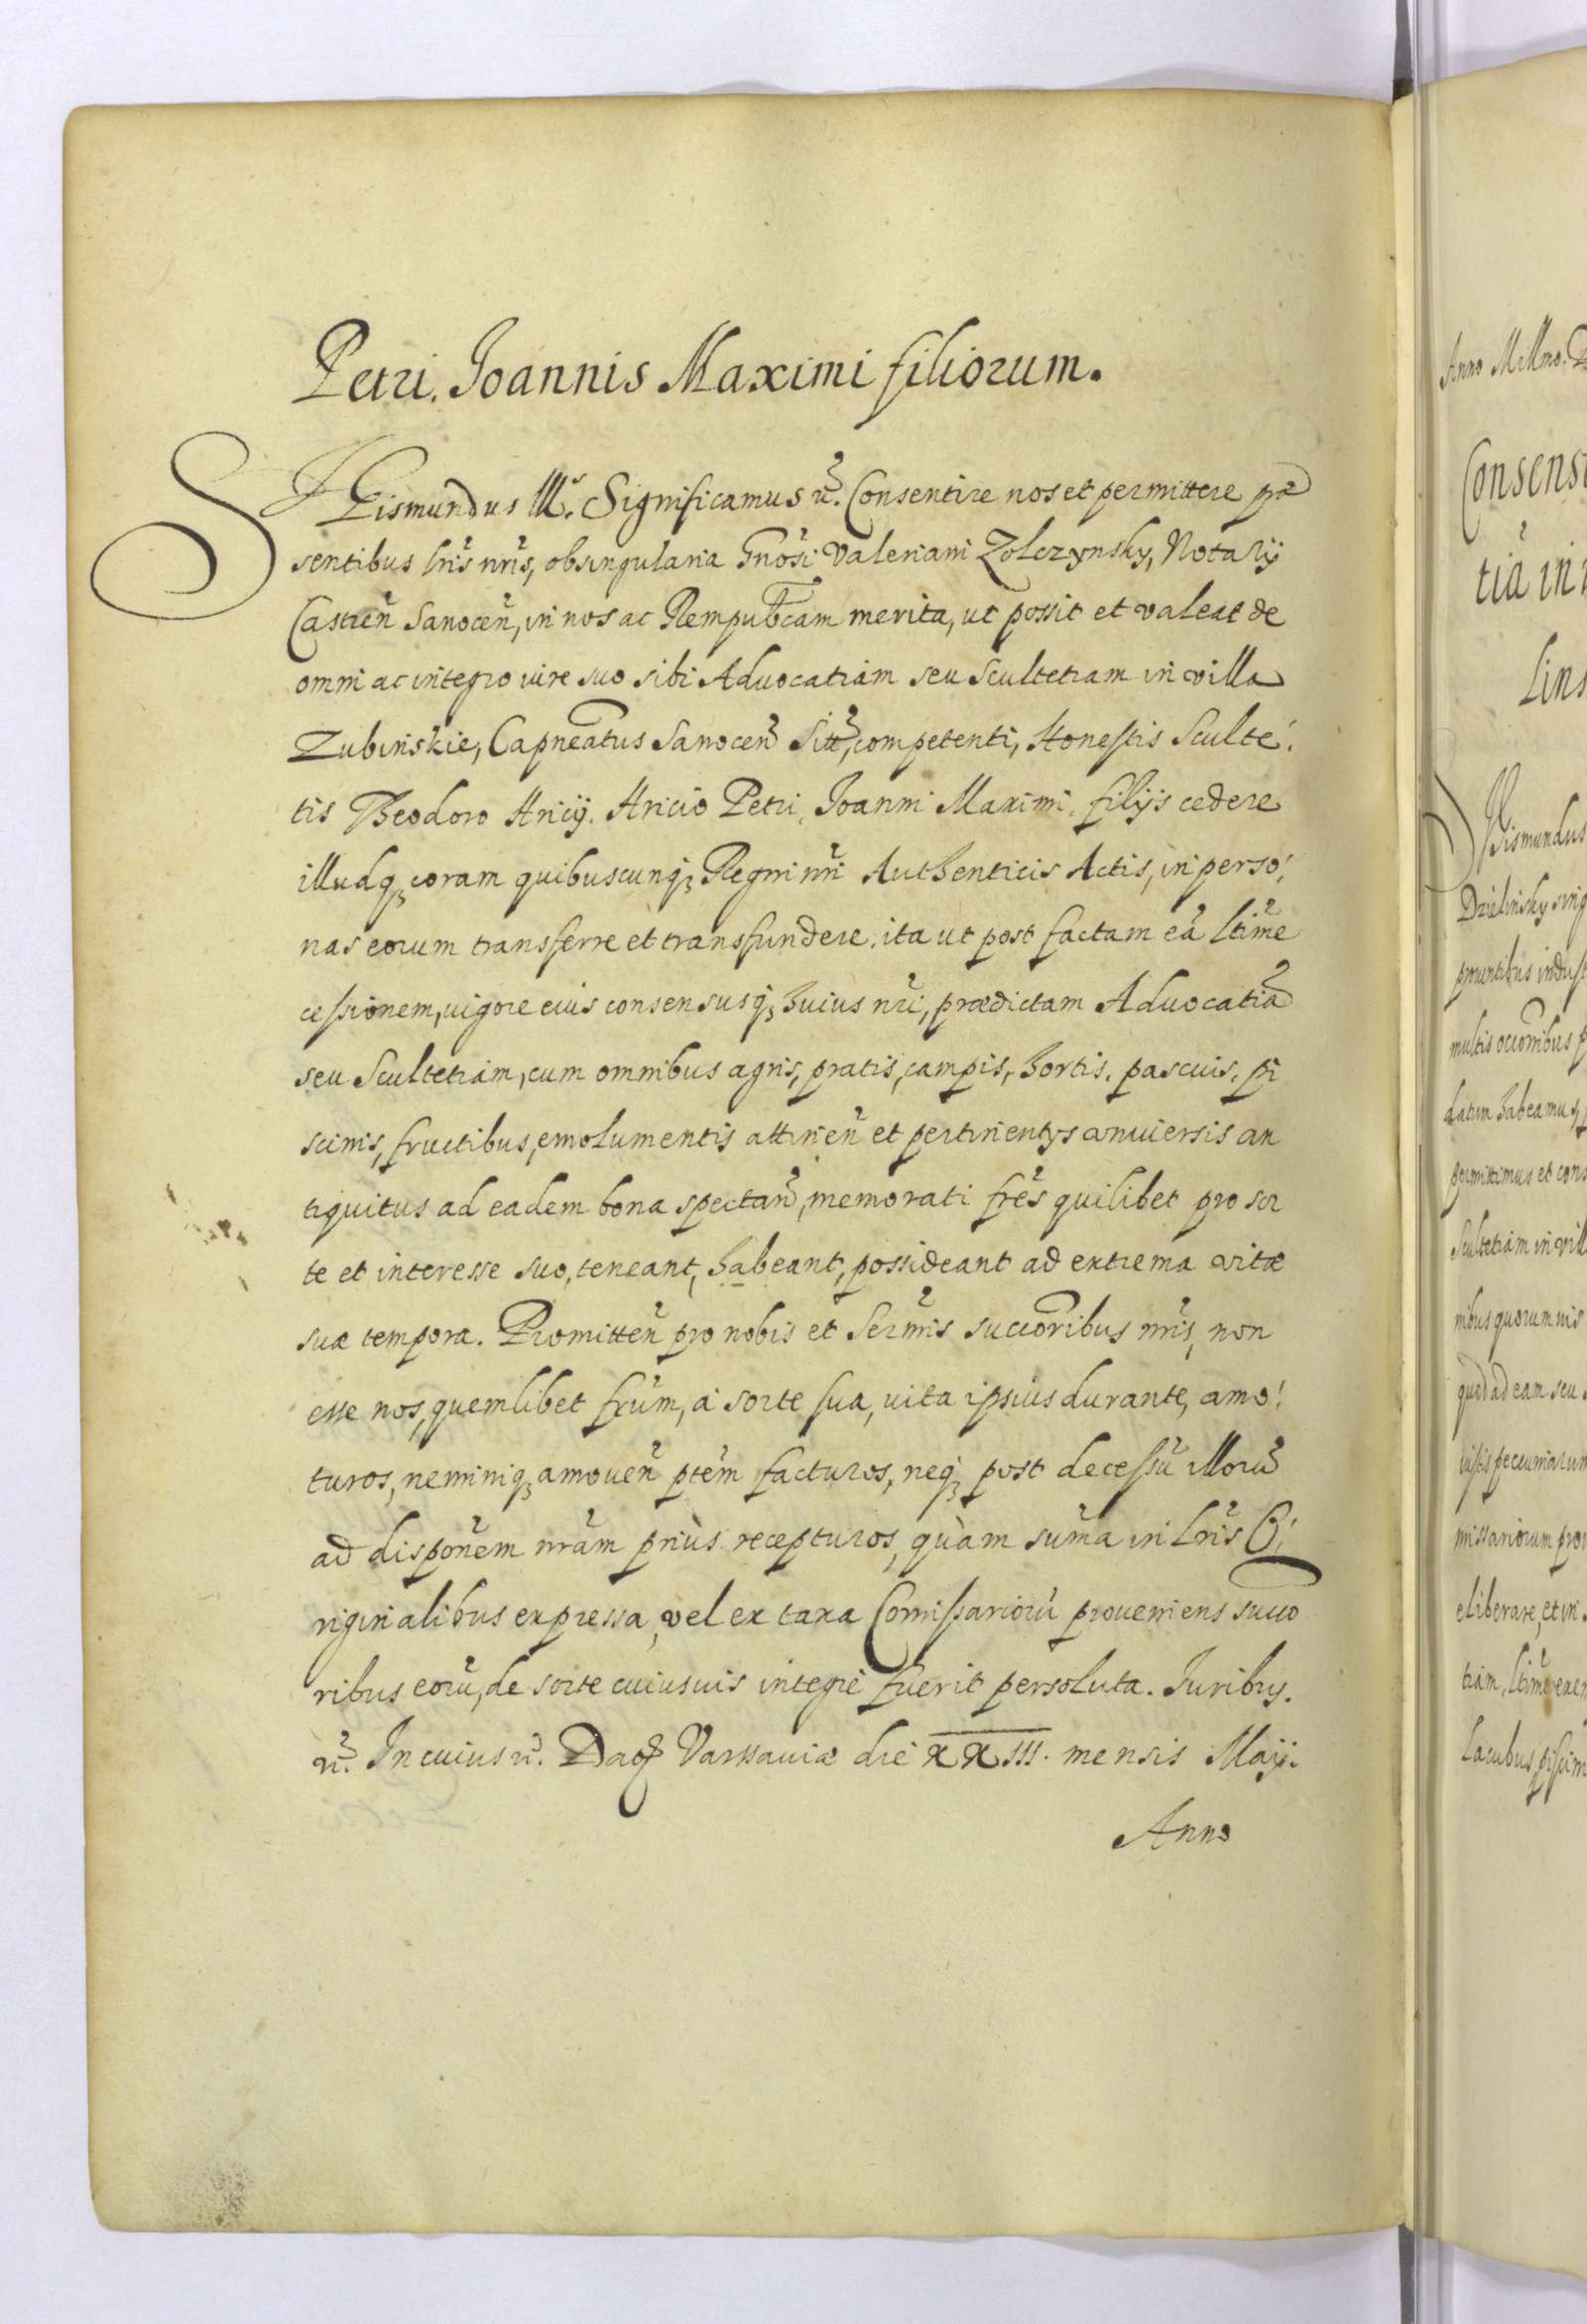 Petri. Joannis Maximi filiorum.
SIGismundus III. Significamus etc. Consentire nos et permittere præ
sentibus lr̃is nr̃is, ob singularia Gnõsi Valeriani Zolczynsky, Notarij
Castreñ Sanoceñ, in nos ac Rempubcam merita, ut possit et valeat de
omni ac integro iure suo sibi Advocatiam seu Scultetiam in villa
Zubinskie, Capneatus Sanoceñ sitt, competenti, Honestis Sculte
tis Theodoro Hricij. Hricio Petri, Joanni Maximi, filijs cedere
illudq3 coram quibuscunq3 Regni nr̃i Authenticis Actis, in perso
nas eorum transferre et transfundere. ita ut post factam eã ltime
cessionem, vigore eius consensusq3 huius nr̃i, prædictam Advocatiã
seu Scultetiam, cum omnibus agris, pratis, campis, hortis, pascuis, pi
scinis, fructibus, emolumentis attineñ et pertinentys universis an
tiquitus ad eadem bona spectañ, memorati fres quilibet pro sor
te et interesse suo, teneant, habeant, possideant ad extrema vitæ
suæ tempora. Promitteñ pro nobis et Sermis succoribus nr̃is, non
esse nos, quemlibet frum, à sorte sua, vita ipsius durante, amo
turos, neminiq3 amoueñ ptem facturos, neq3 post decessũ illorũ
ad disponem nr̃am priùs recepturos, quàm suma in lr̃is O
riginalibus expressa, vel ex taxa Comissariorũ proveniens succo
ribus eorũ, de sorte cuiusuis integrè fuerit persoluta. Juribus.
etc. In cuius etc. Dat Varsauiæ die XXIII. mensis Maij.
Anno
Anno Millmo. D
Consens
tiã in
Lins
Sigismundus
Dzielinsky sing
multis
datum habeamus
permittimus et cons
Scultetiam in vill
nibus quorumuis
quod ad eam seu
iustis pecuniarum
missariorum prou
eliberare, et in
tiam, ltime
Lacubus piscin